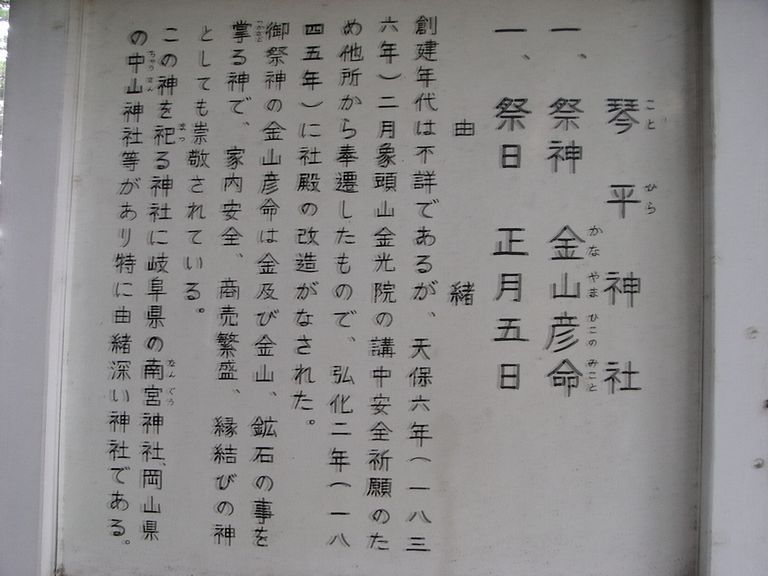 琴平神社
一、祭神　金山彦命
一、祭日　正月五日
由緒
創建年代は不詳であるが、天保六年（一八三
六年）二月象頭山金光院の講中安全祈願のた
め他所から奉遷したもので、弘化二年（一八
四五年）に社殿の改造がなされた。
御祭神の金山彦命は金及び金山、鉱石の事を
掌る神で、家内安全、商売繁盛、縁結びの神
としても崇敬されている。
この神を祀る神社に岐阜県の南宮神社、岡山県
の中山神社等があり特に由緒深い神社である。